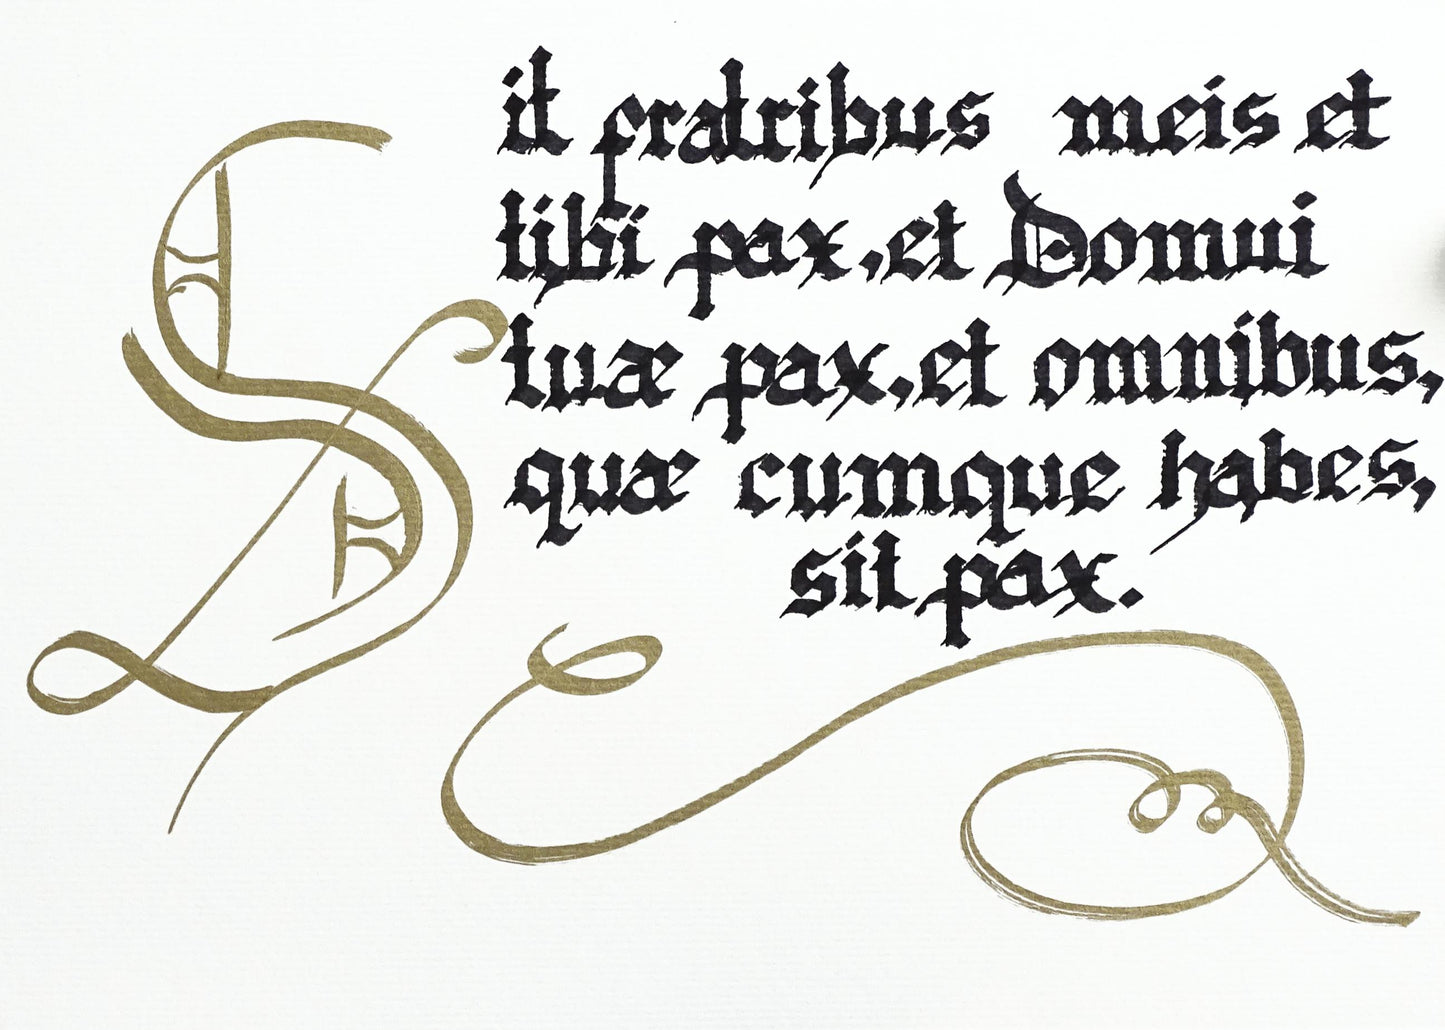 Sit fratribus meis et
tibi pax, et Domui
tuæ pax, et omnibus,
quæ cumque habes,
sit pax.